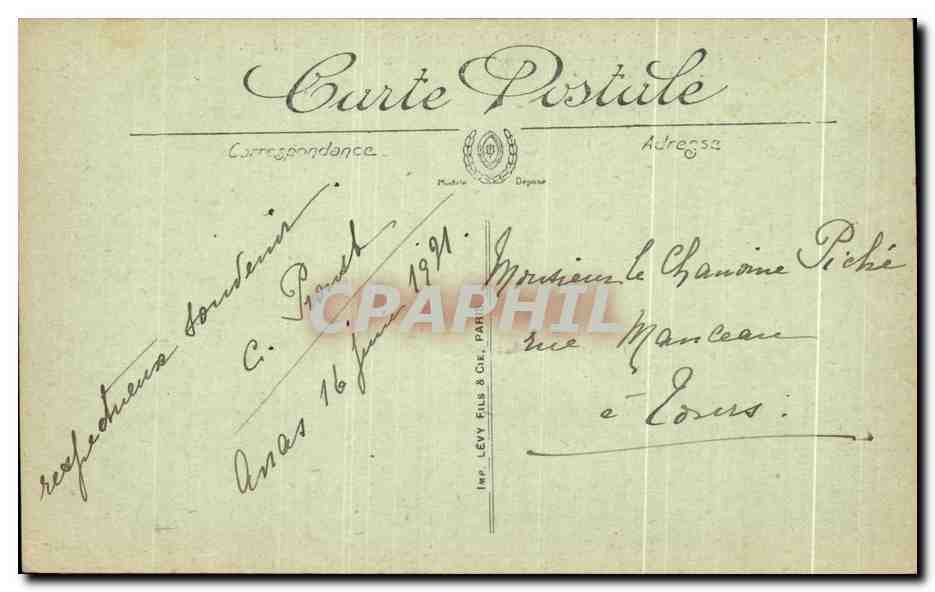 Carte Postale
Correspondance
Adresse
Modèle Déposé
respectueux souvenir.
C. Proust
Arras 16 juin 1921.
IMP. LÉVY FILS & CIE, PARIS
Monsieur le Chanoine Piché
rue Manceau
à Tours.
CPAPHIL